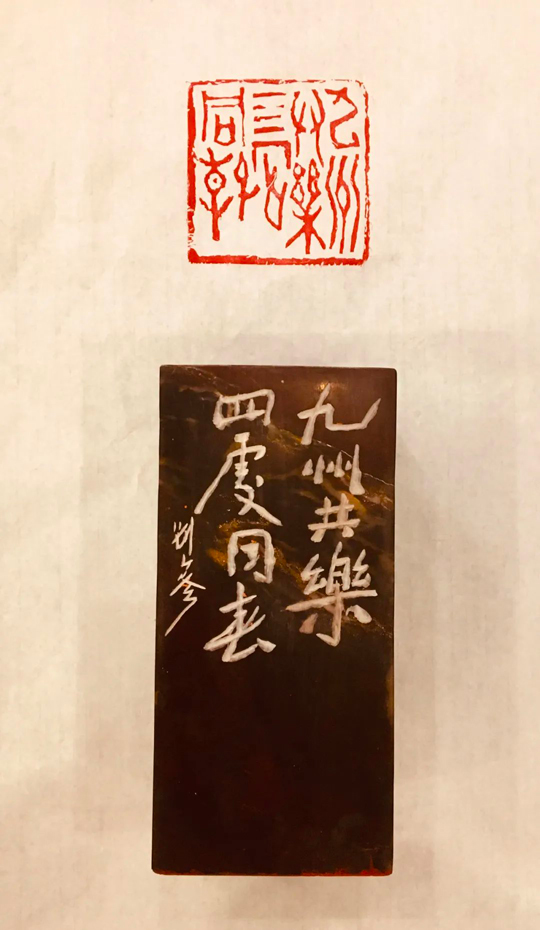 九州
共樂
四處
同春
九州共樂
四處同春